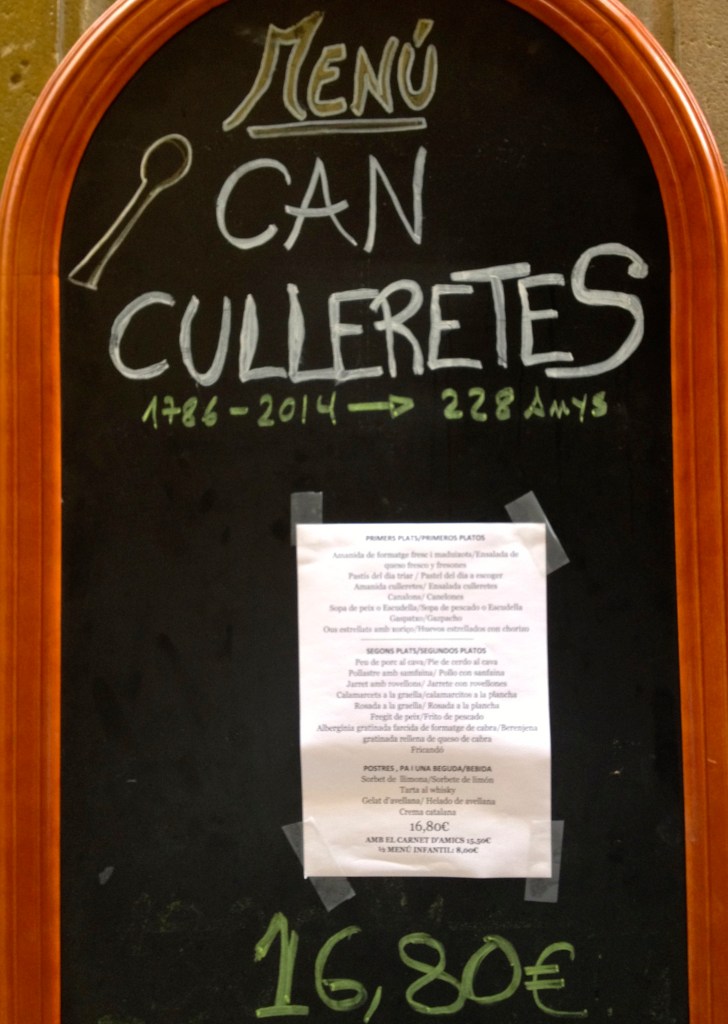 MENÚ
CAN
CULLERETES
1786 - 2014 → 228 Anys
PRIMERS PLATS/PRIMEROS PLATOS
Amanida de formatge fresc i maduixots/Ensalada de
queso fresco y fresones
Pastís del dia triar / Pastel del dia a escoger
Amanida culleretes/ Ensalada culleretes
Canalons/ Canelones
Sopa de peix o Escudella/Sopa de pescado o Escudella
Gaspatxo/Gazpacho
Ous estrellats amb xoriço/Huevos estrellados con chorizo
SEGONS PLATS/SEGUNDOS PLATOS
Peu de porc al cava/Pie de cerdo al cava
Pollastre amb samfaina/ Pollo con sanfaina
Jarret amb rovellons/ Jarrete con rovellones
Calamarcets a la graella/calamarcitos a la plancha
Rosada a la graella/ Rosada a la plancha
Fregit de peix/Frito de pescado
Albergínia gratinada farcida de formatge de cabra/Berenjena
gratinada rellena de queso de cabra
Fricandó
POSTRES , PA I UNA BEGUDA/BEBIDA
Sorbet de llimona/Sorbete de limón
Tarta al whisky
Gelat d'avellana/ Helado de avellana
Crema catalana
16,80€
AMB EL CARNET D'AMICS 15,50€
½ MENÚ INFANTIL: 8,00€
16,80€